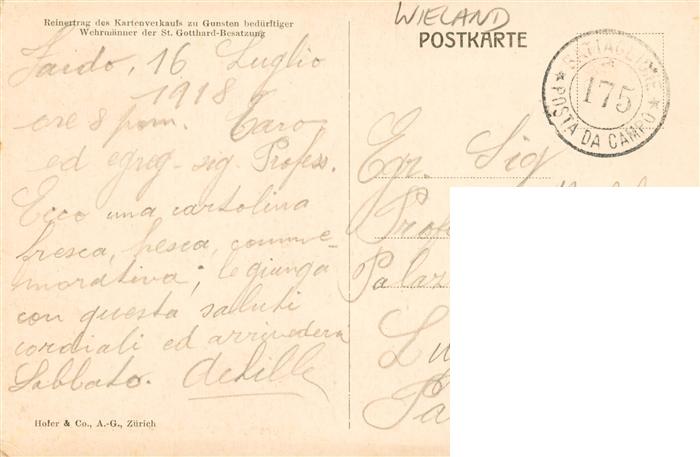 Reinertrag des Kartenverkaufs zu Gunsten bedürftiger
Wehrmänner der St. Gotthard-Besatzung
WIELAND
POSTKARTE
BATTAGLIONE
175
POSTA DA CAMPO
Faido, 16 Luglio
1918
ore 8 pom. Caro
ed egreg. sig. Profess.
Ecco una cartolina
fresca, fresca, comme-
morativa; le giunga
con questa saluti
cordiali ed arrivederci
Sabbato. Achille
Egr. Sig
Hofer & Co., A.-G., Zürich